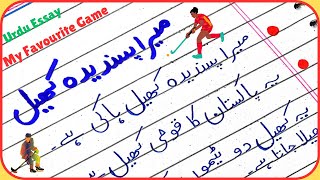 Urdu Essay
My Favourite Game
میرا پسندیدہ کھیل
میرا پسندیدہ کھیل ہاکی ہے۔
یہ پاکستان کا قومی کھیل ہے۔
یہ کھیل دو ٹیموں
کھیلا جاتا ہے۔